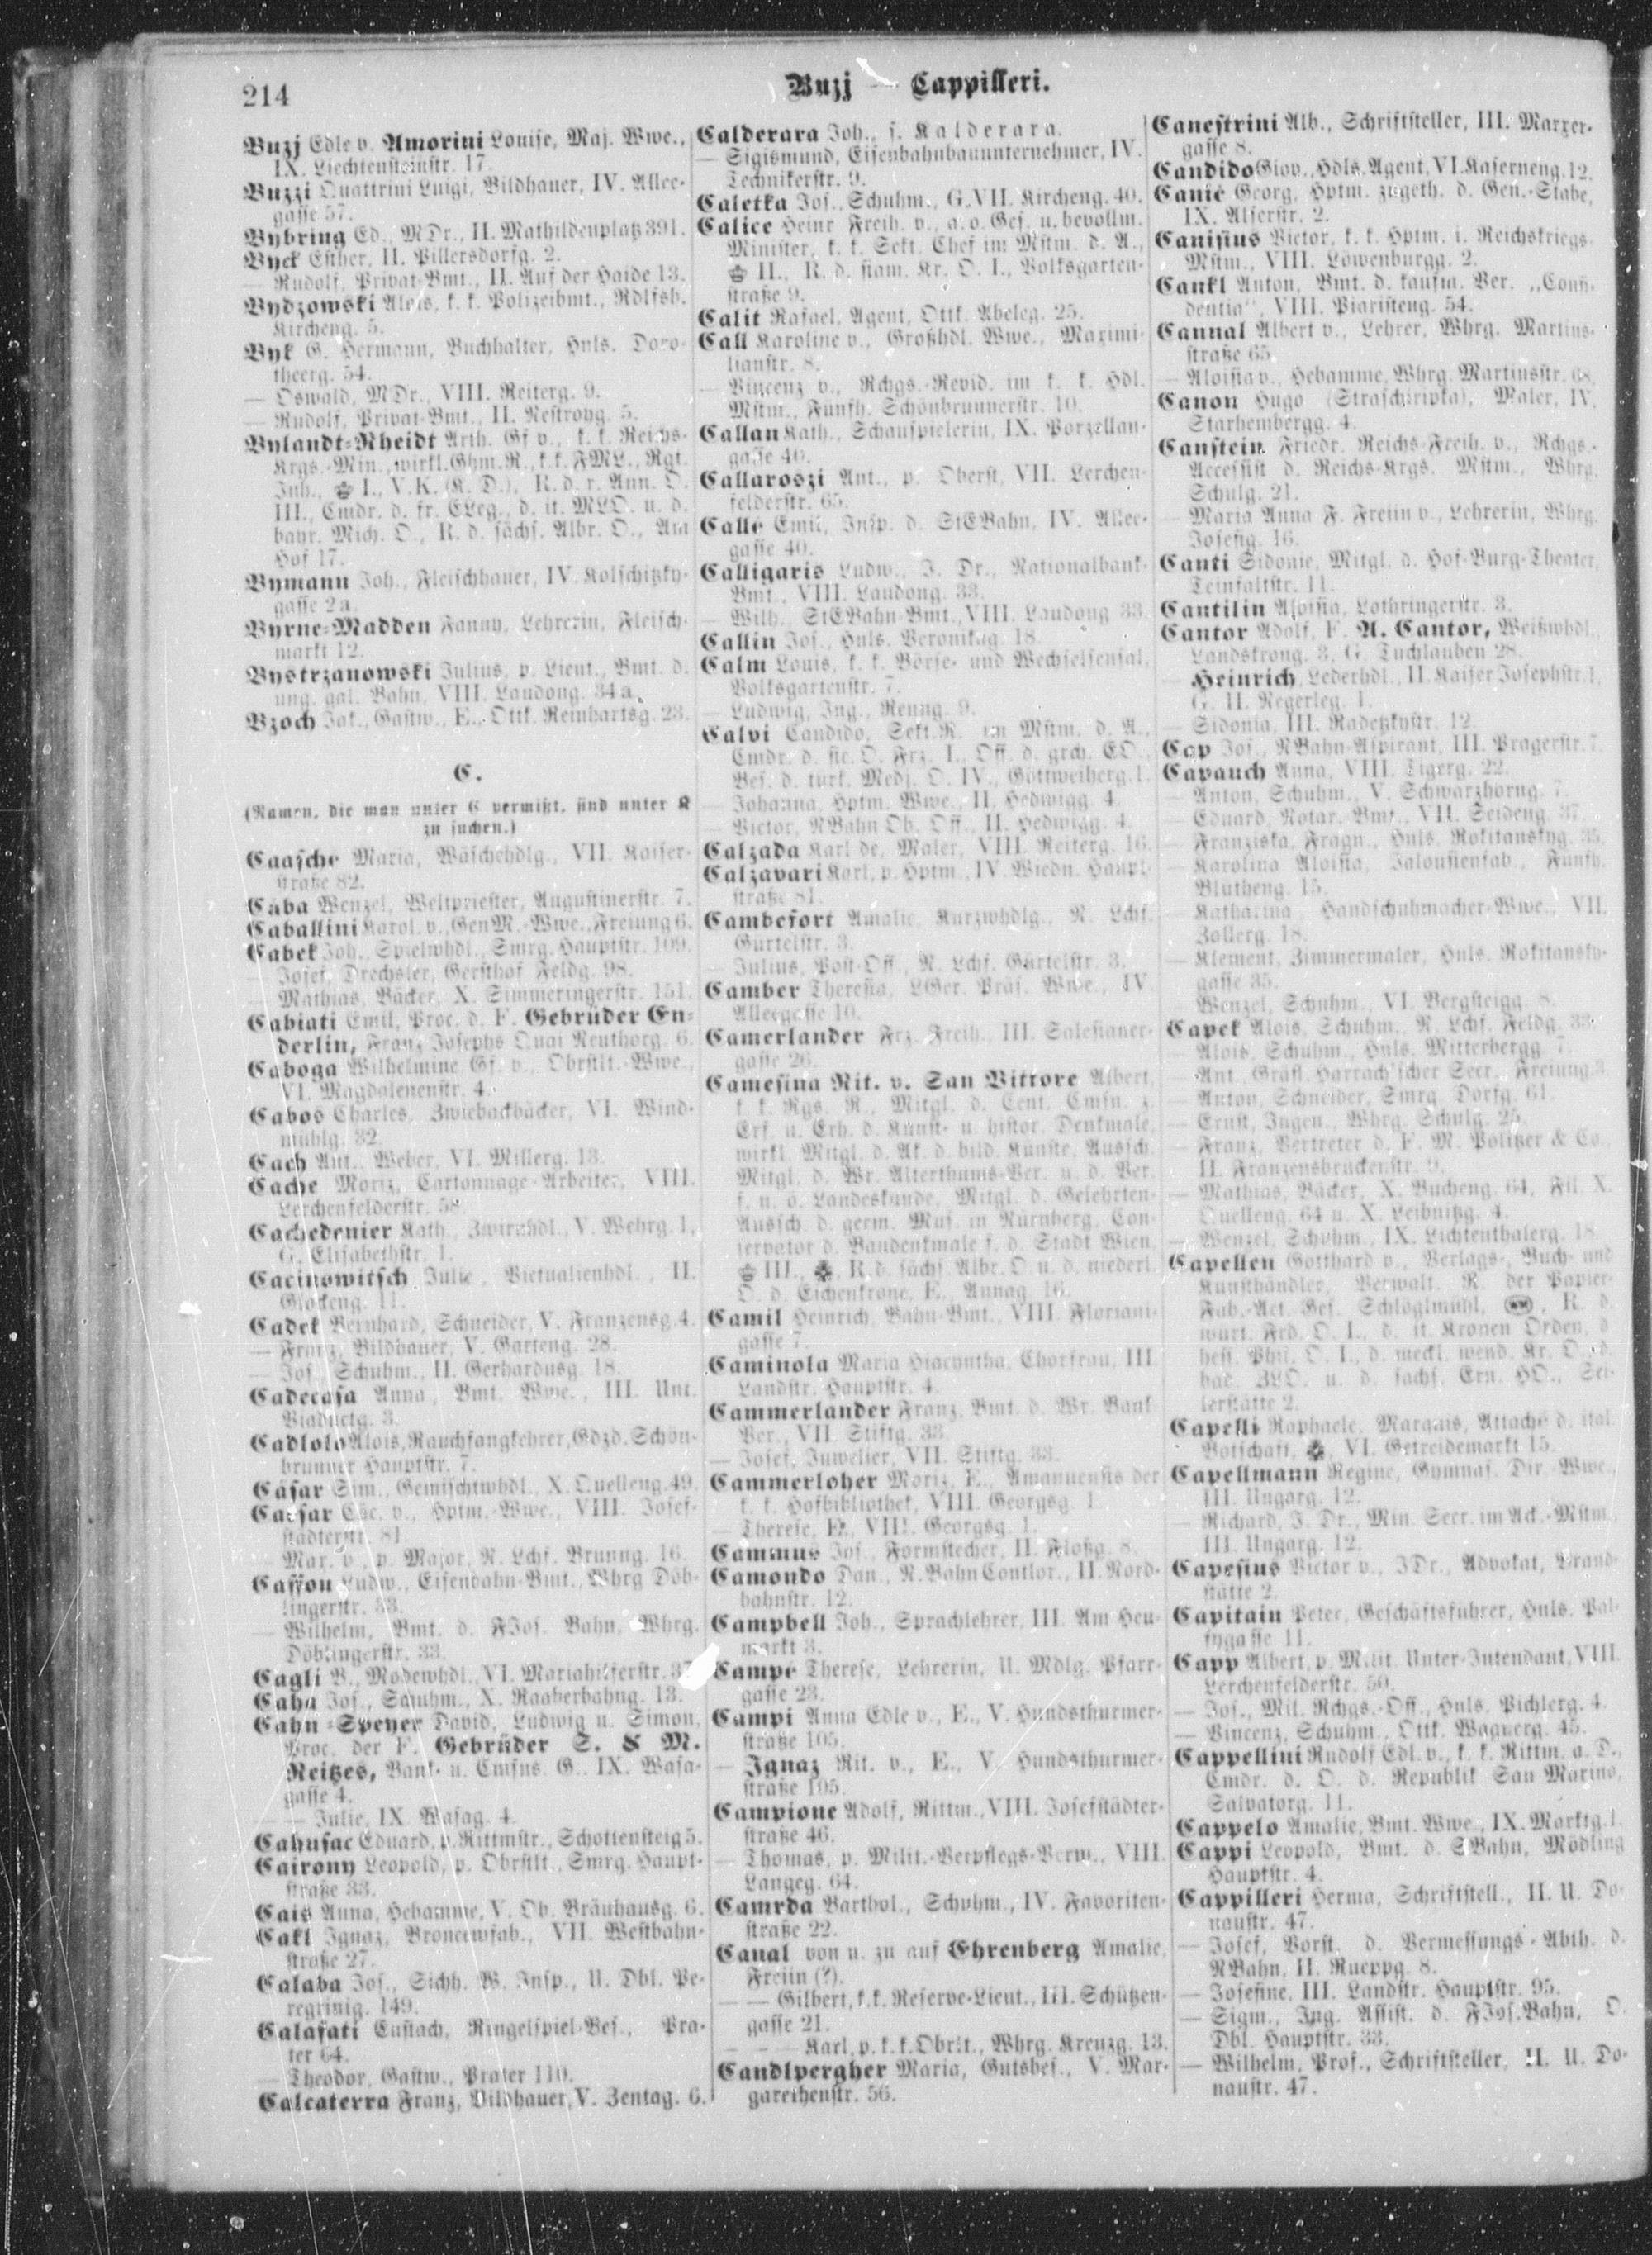 214
Buzj — Cappilleri.
Buzj Edle v. Amorini Louise, Maj. Wwe.,
IX. Liechtensteinstr. 17.
Buzzi Quattrini Luigi, Bildhauer, IV. Allee-
gasse 57.
Bybring Ed., MDr., II. Mathildenplatz 391.
Byck Esther, II. Pillersdorfg. 2.
— Rudolf, Privat-Bmt., II. Auf der Haide 13.
Bydzowski Alois, k. k. Polizeibmt., Rdlfsh.
Kircheng. 5.
Byk G. Hermann, Buchhalter, Hnls. Doro-
theerg. 54.
— Oswald, MDr., VIII. Reiterg. 9.
— Rudolf, Privat-Bmt., II. Nestroyg. 5.
Bylandt-Rheidt Arth. Gf v., k. k. Reichs-
Krgs.-Min., wirkl. Ghm. R., k. k. FML., Rgt.
Inh., I., V.K. (K. D.), R. d. r. Ann. O.
III., Cmdr. d. fr. ELeg., d. it. MLO. u. d.
bayr. Mich. O., R. d. sächs. Albr. O., Am
Hof 17.
Bymann Joh., Fleischhauer, IV. Kolschitzky-
gasse 2a.
Byrne-Madden Fanny, Lehrerin, Fleisch-
markt 12.
Bystrzanowski Julius, p. Lieut., Bmt. d.
ung. gal. Bahn, VIII. Laudong. 34a.
Bzoch Jak., Gastw., E., Ottk. Reinhartsg. 23.
C.
(Namen, die man unter C vermißt, sind unter K
zu suchen.)
Caasche Maria, Wäschehdlg., VII. Kaiser-
straße 82.
Caba Wenzel, Weltpriester, Augustinerstr. 7.
Caballini Karol. v., GenM.-Wwe., Freiung 6.
Cabek Joh., Spielwhdl., Smrg. Hauptstr. 109.
— Josef, Drechsler, Gersthof Feldg. 98.
— Mathias, Bäcker, X. Simmeringerstr. 151.
Cabiati Emil, Proc. d. F. Gebrüder En-
derlin, Franz Josephs Quai Neuthorg. 6.
Caboga Wilhelmine Gf. v., Obrstlt.-Wwe.,
VI. Magdalenenstr. 4.
Cabos Charles, Zwiebackbäcker, VI. Wind-
mühlg. 32.
Cach Ant., Weber, VI. Millerg. 13.
Cache Moriz, Cartonnage-Arbeiter, VIII.
Lerchenfelderstr. 58.
Cachedenier Kath., Zwirnhdl., V. Wehrg. 1,
G. Elisabethstr. 1.
Cacinowitsch Julie, Victualienhdl., II.
Glockeng. 11.
Cadek Bernhard, Schneider, V. Franzensg. 4.
— Franz, Bildhauer, V. Garteng. 28.
— Jos., Schuhm., II. Gerhardusg. 18.
Cadecasa Anna, Bmt. Wwe., III. Unt.
Viaductg. 3.
Cadlolo Alois, Rauchfangkehrer, Gdzd. Schön-
brunner Hauptstr. 7.
Cäsar Sim., Gemischtwhdl., X. Quelleng. 49.
Caesar Cäc. v., Hptm.-Wwe., VIII. Josef-
städterstr. 81.
— Mar. v., p. Major, N. Lchf. Brunng. 16.
Caffou Ludw., Eisenbahn-Bmt., Whrg Döb-
lingerstr. 33.
— Wilhelm, Bmt. d. FJos. Bahn, Whrg.
Döblingerstr. 33.
Cagli B., Modewhdl., VI. Mariahilferstr.
Cahn Jos., Schuhm., X. Raaberbahng. 13.
Cahn-Speyer David, Ludwig u. Simon,
Proc. der F. Gebrüder S. & M.
Reitzes, Bank- u. Cmsns. G., IX. Wasa-
gasse 4.
— — Julie, IX. Wasag. 4.
Cahusac Eduard, p. Rittmstr., Schottensteig 5.
Cairony Leopold, p. Obrstlt., Smrg. Haupt-
straße 33.
Cais Anna, Hebamme, V. Ob. Bräuhausg. 6.
Cakl Ignaz, Broncewfab., VII. Westbahn-
straße 27.
Calaba Jos., Sichh. W. Insp., U. Dbl. Pe-
regrinig. 149.
Calafati Eustach, Ringelspiel-Bes., Pra-
ter 64.
— Theodor, Gastw., Prater 110.
Calcaterra Franz, Bildhauer, V. Zentag. 6.
Calderara Joh., s. Kalderara.
— Sigismund, Eisenbahnbauunternehmer, IV.
Technikerstr. 9.
Caletka Jos., Schuhm., G. VII. Kircheng. 40.
Calice Heinr Freih. v., a. o. Ges. u. bevollm.
Minister, k. k. Sekt. Chef im Mstm. d. A.,
II., R. d. siam. Kr. O. I., Volksgarten-
straße 9.
Calit Rafael, Agent, Ottk. Abeleg. 25.
Call Karoline v., Großhdl. Wwe., Maximi-
lianstr. 8.
— Vincenz v., Rchgs.-Revid. im k. k. Hdl.
Mstm., Fünfh. Schönbrunnerstr. 10.
Callan Kath., Schauspielerin, IX. Porzellan-
gasse 40.
Callaroszi Ant., p. Oberst, VII. Lerchen-
felderstr. 65.
Calle Emil, Insp. d. StEBahn, IV. Allee-
gasse 40.
Calligaris Ludw., J. Dr., Nationalbank-
Bmt., VIII. Laudong. 33.
— Wilh., StEBahn-Bmt., VIII. Laudong 33.
Callin Jos., Hnls. Veronikag. 18.
Calm Louis, k. k. Börse- und Wechselsensal,
Volksgartenstr. 7.
— Ludwig, Ing., Renng. 9.
Calvi Candido, Sekt.R. im Mstm. d. A.,
Cmdr. d. sic. O. Frz. I., Off. d. grch. EO.,
Bes. d. türk. Medj. O. IV., Göttweiherg. 1.
— Johanna, Hptm. Wwe., II. Hedwigg. 4.
— Victor, NBahn Ob. Off., II. Hedwigg. 4.
Calzada Karl de, Maler, VIII. Reiterg. 16.
Calzavari Karl, p. Hptm., IV. Wiedn. Haupt-
straße 81.
Cambefort Amalie, Kurzwhdlg., N. Lchf.
Gürtelstr. 3.
— Julius, Post-Off., N. Lchf. Gürtelstr. 3.
Camber Theresia, LGer. Präs. Wwe., IV.
Alleegasse 10.
Camerlander Frz. Freih., III. Salesianer-
gasse 26.
Camesina Rit. v. San Vittore Albert,
k. k. Rgs. R., Mitgl. d. Cent. Cmsn. z.
Erf. u. Erh. d. Kunst- u. histor. Denkmale,
wirkl. Mitgl. d. Ak. d. bild. Künste, Aussch.
Mitgl. d. Wr. Alterthums-Ver. u. d. Ver.
f. n. ö. Landeskunde, Mitgl. d. Gelehrten-
Aussch. d. germ. Mus. in Nürnberg, Con-
servator d. Baudenkmale f. d. Stadt Wien,
III., R. d. sächs. Albr. O u. d. niederl.
O. d. Eichenkrone, E., Annag. 16.
Camil Heinrich, Bahn-Bmt., VIII. Floriani-
gasse 7.
Caminola Maria Hiacyntha, Chorfrau, III.
Landstr. Hauptstr. 4.
Cammerlander Franz, Bmt. d. Wr. Bank
Ver., VII. Stiftg. 33.
— Josef, Juwelier, VII. Stiftg. 33.
Cammerloher Moriz, E., Amanuensis der
k. k. Hofbibliothek, VIII. Georgsg. 1.
— Therese, E., VIII. Georgsg. 1.
Cammus Jos., Formstecher, II. Floßg. 8.
Camondo Dan., N.BahnContlor., II. Nord-
bahnstr. 12.
Campbell Joh., Sprachlehrer, III. Am Heu-
markt 3.
Campe Therese, Lehrerin, U. Mdlg. Pfarr-
gasse 23.
Campi Anna Edle v., E., V. Hundsthurmer-
straße 105.
— Ignaz Rit. v., E., V. Hundsthurmer-
straße 105.
Campione Adolf, Rittm., VIII. Josefstädter-
straße 46.
— Thomas, p. Milit.-Verpflegs-Verw., VIII.
Langeg. 64.
Camrda Barthol., Schuhm., IV. Favoriten-
straße 22.
Canal von u. zu auf Ehrenberg Amalie,
Freiin (?).
— — Gilbert, k. k. Reserve-Lieut., III. Schützen-
gasse 21.
— — Karl, p. k. k. Obrlt., Whrg. Kreuzg. 13.
Candlpergher Maria, Gutsbes., V. Mar-
garethenstr. 56.
Canestrini Alb., Schriftsteller, III. Marxer-
gasse 8.
Candido Giov., Hdls. Agent, VI. Kaserneng. 12.
Canic Georg, Hptm. zugeth. d. Gen.-Stabe,
IX. Alserstr. 2.
Canisius Victor, k. k. Hptm. i. Reichskriegs-
Mstm., VIII. Löwenburgg. 2.
Cankl Anton, Bmt. d. kaufm. Ver. „Confi-
dentia", VIII. Piaristeng. 54.
Cannal Albert v., Lehrer, Whrg. Martins-
straße 65.
— Aloisia v., Hebamme, Whrg. Martinsstr. 68.
Canon Hugo (Straschiripka), Maler, IV.
Starhembergg. 4.
Canstein Friedr. Reichs-Freih. v., Rchgs.-
Accessist d. Reichs-Krgs. Mstm., Whrg.
Schulg. 21.
— Maria Anna F. Freiin v., Lehrerin, Whrg.
Josefig. 16.
Canti Sidonie, Mitgl. d. Hof-Burg-Theater,
Teinfaltstr. 11.
Cantilin Aloisia, Lothringerstr. 3.
Cantor Adolf, F. A. Cantor, Weißwhdl.,
Landskrong. 3, G. Tuchlauben 28.
— Heinrich, Lederhdl., II. Kaiser Josephstr. 1,
G. II. Negerleg. 1.
— Sidonia, III. Radetzkystr. 12.
Cap Jos., NBahn-Aspirant, III. Pragerstr. 7.
Capauch Anna, VIII. Tigerg. 22.
— Anton, Schuhm., V. Schwarzhorng. 7.
— Eduard, Notar. Bmt., VII. Seideng. 37.
— Franziska, Fragn., Hnls. Rokitanskyg. 35.
— Karolina Aloisia, Jalousienfab., Fünfh.
Blütheng. 15.
— Katharina, Handschuhmacher-Wwe., VII.
Zollerg. 18.
— Klement, Zimmermaler, Hnls. Rokitansky-
gasse 35.
— Wenzel, Schuhm., VI. Bergsteigg. 8.
Capek Alois, Schuhm., N. Lchf. Feldg. 33.
— Alois, Schuhm., Hnls. Mitterbergg. 7.
— Ant., Gräfl. Harrach'scher Secr., Freiung 3.
— Anton, Schneider, Smrg. Dorfg. 61.
— Ernst, Ingen., Whrg. Schulg. 25.
— Franz, Vertreter d. F. M. Politzer & Co.,
II. Franzensbrückenstr. 9.
— Mathias, Bäcker, X. Bucheng. 64, Fil. X.
Quelleng. 64 u. X. Leibnitzg. 4.
— Wenzel, Schuhm., IX. Lichtenthalerg. 18.
Capellen Gotthard v., Verlags-, Buch- und
Kunsthändler, Verwalt. R. der Papier-
Fab.-Act. Ges. Schlöglmühl, R. d.
würt. Frd. O. I., d. it. Kronen Orden, d.
hess. Phil. O. I., d. meckl. wend. Kr. O., d.
bad. ZLO. u. d. sächs. Ern. HO., Sei-
lerstätte 2.
Capelli Raphaele, Marquis, Attaché d. ital.
Botschaft, VI. Getreidemarkt 15.
Capellmann Regine, Gymnas. Dir.-Wwe.,
III. Ungarg. 12.
— Richard, J. Dr., Min. Secr. im Ack.-Mstm.,
III. Ungarg. 12.
Capesius Victor v., JDr., Advokat, Brand-
stätte 2.
Capitain Peter, Geschäftsführer, Hnls. Pal-
fygasse 11.
Capp Albert, p. Milit. Unter-Intendant, VIII.
Lerchenfelderstr. 50.
— Jos., Mil. Rchgs.-Off., Hnls. Pichlerg. 4.
— Vincenz, Schuhm., Ottk. Wagnerg. 45.
Cappellini Rudolf Edl. v., k. k. Rittm. a. D.,
Cmdr. d. O. d. Republik San Marino,
Salvatorg. 11.
Cappelo Amalie, Bmt. Wwe., IX. Marktg. 1.
Cappi Leopold, Bmt. d. SBahn, Mödling
Hauptstr. 4.
Cappilleri Herma, Schriftstell., II. U. Do-
naustr. 47.
— Josef, Vorst. d. Vermessungs-Abth. d.
NBahn, II. Rueppg. 8.
— Josefine, III. Landstr. Hauptstr. 95.
— Sigm., Ing. Assist. d. FJos.Bahn, O.
Dbl. Hauptstr. 33.
— Wilhelm, Prof., Schriftsteller, II. U. Do-
naustr. 47.